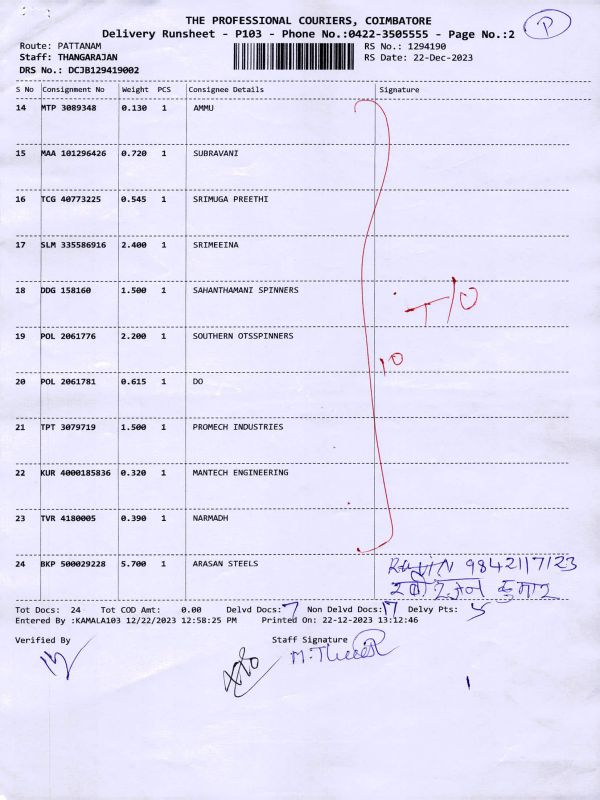 THE PROFESSIONAL COURIERS, COIMBATORE
Delivery Runsheet - P103 - Phone No.:0422-3505555 - Page No.:2
P
Route: PATTANAM
RS No.: 1294190
Staff: THANGARAJAN
RS Date: 22-Dec-2023
DRS No.: DCJB129419002
S No Consignment No Weight PCS Consignee Details Signature
14 MTP 3089348 0.130 1 AMMU
15 MAA 101296426 0.720 1 SUBRAVANI
16 TCG 40773225 0.545 1 SRIMUGA PREETHI
17 SLM 335586916 2.400 1 SRIMEEINA
18 DDG 158160 1.500 1 SAHANTHAMANI SPINNERS
T/O
19 POL 2061776 2.200 1 SOUTHERN OTSSPINNERS
10
20 POL 2061781 0.615 1 DO
21 TPT 3079719 1.500 1 PROMECH INDUSTRIES
22 KUR 4000185836 0.320 1 MANTECH ENGINEERING
23 TVR 4180005 0.390 1 NARMADH
24 BKP 500029228 5.700 1 ARASAN STEELS
9842117123
कुमार
Tot Docs: 24 Tot COD Amt: 0.00 Delvd Docs: 7 Non Delvd Docs: 17 Delvy Pts: 5
Entered By :KAMALA103 12/22/2023 12:58:25 PM Printed On: 22-12-2023 13:12:46
Verified By Staff Signature